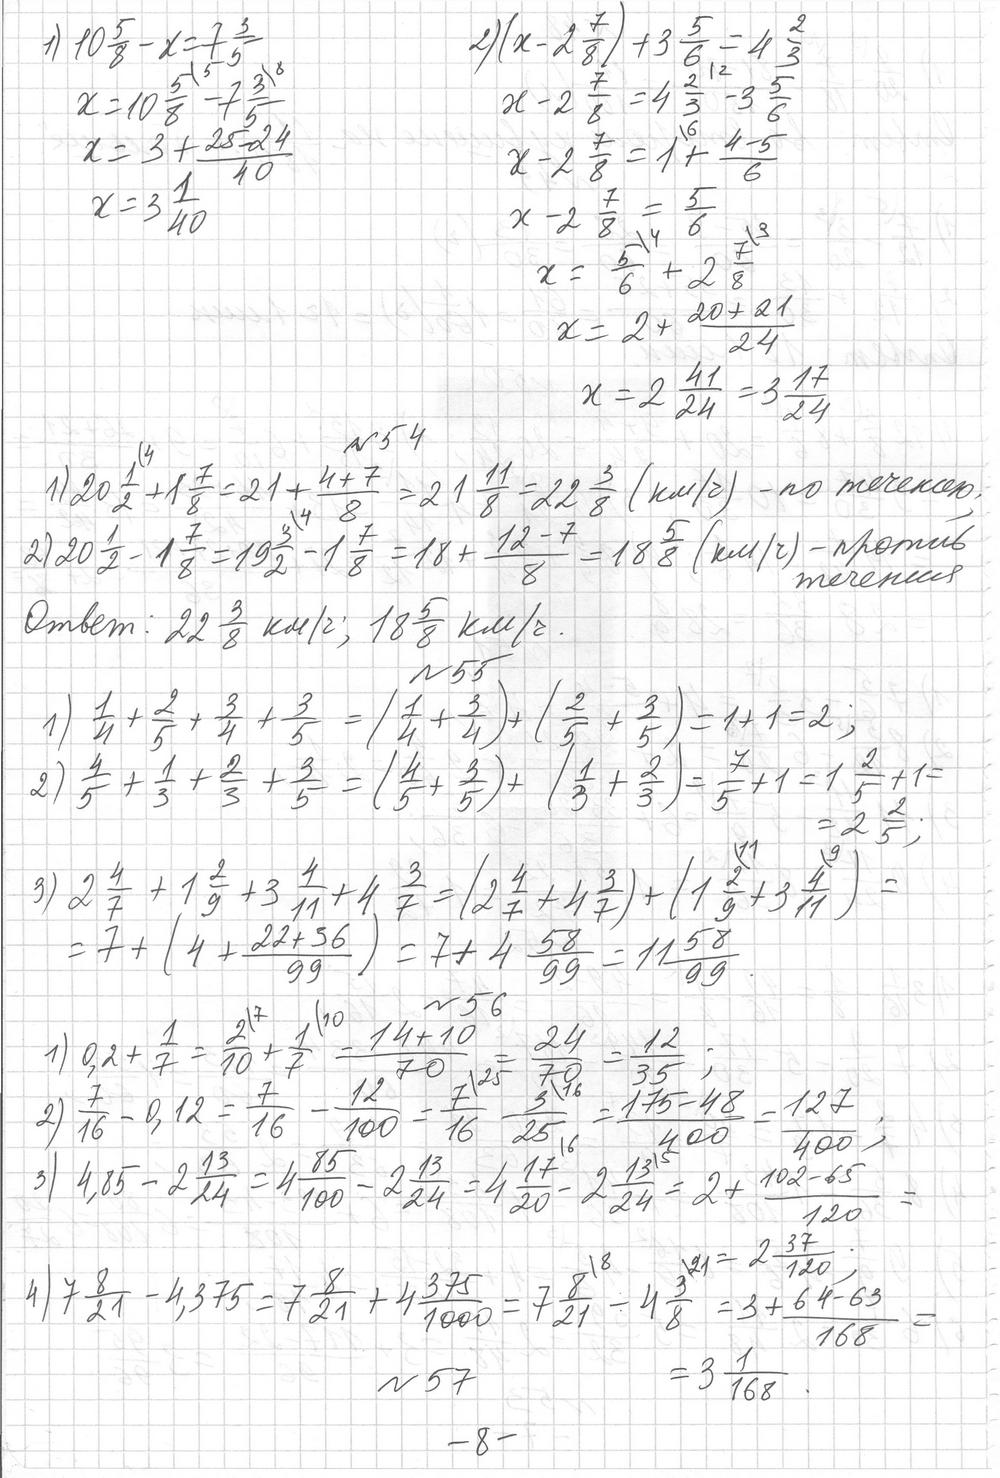 1) 10 5/8 - x = 7 3/5
x = 10 5/8\5 - 7 3/5\8
x = 3 + (25-24)/40
x = 3 1/40
2) (x - 2 7/8) + 3 5/6 = 4 2/3
x - 2 7/8 = 4 2/3\2 - 3 5/6
x - 2 7/8 = 1\6 + (4-5)/6
x - 2 7/8 = 5/6
x = 5/6\4 + 2 7/8\3
x = 2 + (20+21)/24
x = 2 41/24 = 3 17/24
№54
1) 20 1/2\4 + 1 7/8 = 21 + (4+7)/8 = 21 11/8 = 22 3/8 (км/ч) - по течению;
2) 20 1/2 - 1 7/8 = 19 3/2\4 - 1 7/8 = 18 + (12-7)/8 = 18 5/8 (км/ч) - против
течения
Ответ: 22 3/8 км/ч; 18 5/8 км/ч.
№55
1) 1/4 + 2/5 + 3/4 + 3/5 = (1/4 + 3/4) + (2/5 + 3/5) = 1 + 1 = 2;
2) 4/5 + 1/3 + 2/3 + 3/5 = (4/5 + 3/5) + (1/3 + 2/3) = 7/5 + 1 = 1 2/5 + 1 =
= 2 2/5;
3) 2 4/7 + 1 2/9 + 3 4/11 + 4 3/7 = (2 4/7 + 4 3/7) + (1 2/9\11 + 3 4/11\9) =
= 7 + (4 + (22+36)/99) = 7 + 4 58/99 = 11 58/99.
№56
1) 0,2 + 1/7 = 2/10\7 + 1/7\10 = (14+10)/70 = 24/70 = 12/35;
2) 7/16 - 0,12 = 7/16 - 12/100 = 7/16\25 - 3/25\16 = (175-48)/400 = 127/400;
3) 4,85 - 2 13/24 = 4 85/100 - 2 13/24 = 4 17/20\6 - 2 13/24\5 = 2 + (102-65)/120 =
= 2 37/120;
4) 7 8/21 - 4,375 = 7 8/21 + 4 375/1000 = 7 8/21\8 - 4 3/8\21 = 3 + (64-63)/168 =
= 3 1/168.
№57
-8-